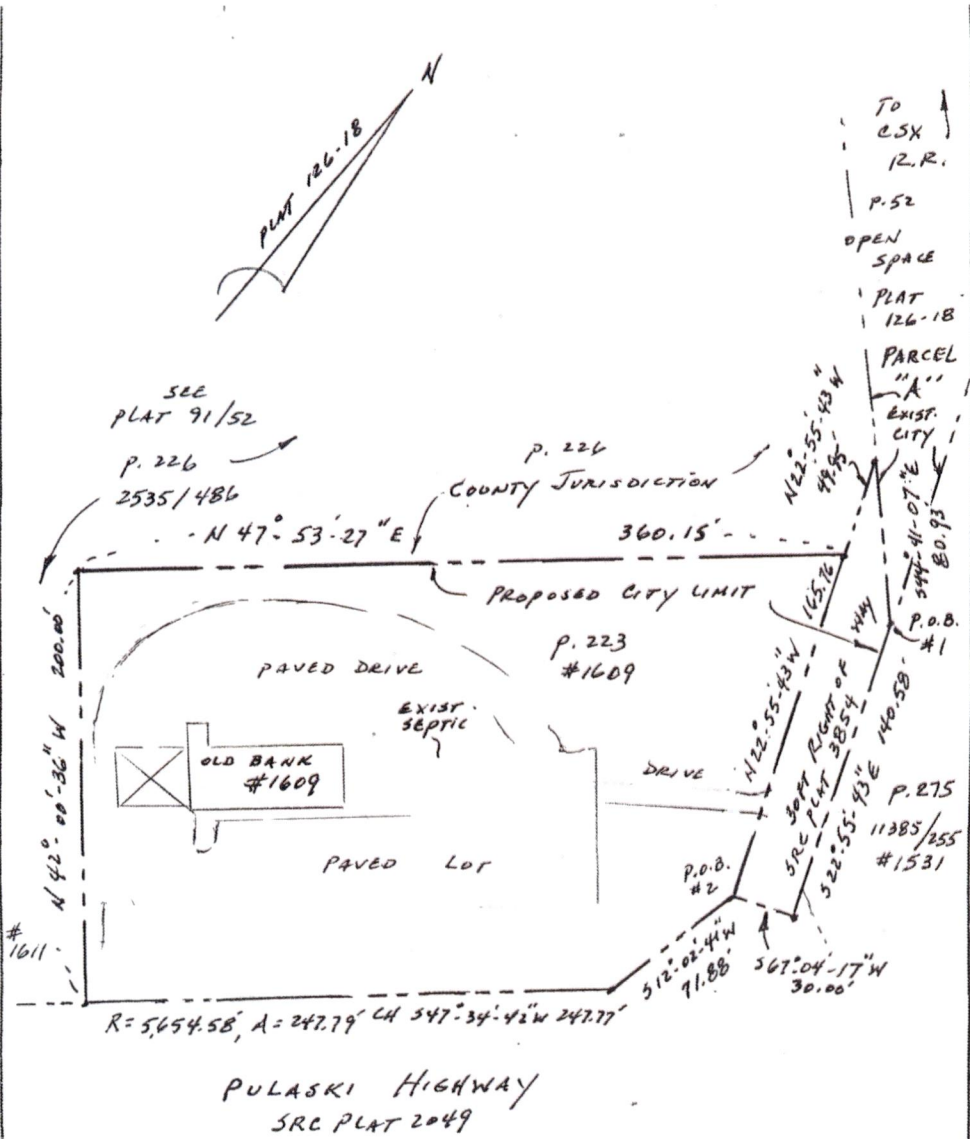 N
PLAT 126-18
TO
CSX
R.R.
P.52
OPEN
SPACE
PLAT
126-18
PARCEL
"A"
EXIST.
CITY
SEE
PLAT 91/52
P. 226
2535/486
P. 226
COUNTY JURISDICTION
N22°-55'-43"W
49.95'
S44°-41'-07"E
80.93'
N 47°-53'-27"E
360.15'
PROPOSED CITY LIMIT
P.O.B.
#1
P. 223
#1609
165.76'
N22°-55'-43"W
N 42°-00'-36"W 200.00'
PAVED DRIVE
EXIST.
SEPTIC
OLD BANK
#1609
DRIVE
30FT RIGHT OF WAY
SRC PLAT 3854
S22°-55'-43"E 140.58'
P.275
11385/255
#1531
PAVED LOT
P.O.B.
#2
#
1611
S12°-02'-41"W
71.88'
S67°-04'-17"W
30.00'
R=5,654.58', A=247.79' CH S47°-34'-42"W 247.77'
PULASKI HIGHWAY
SRC PLAT 2049